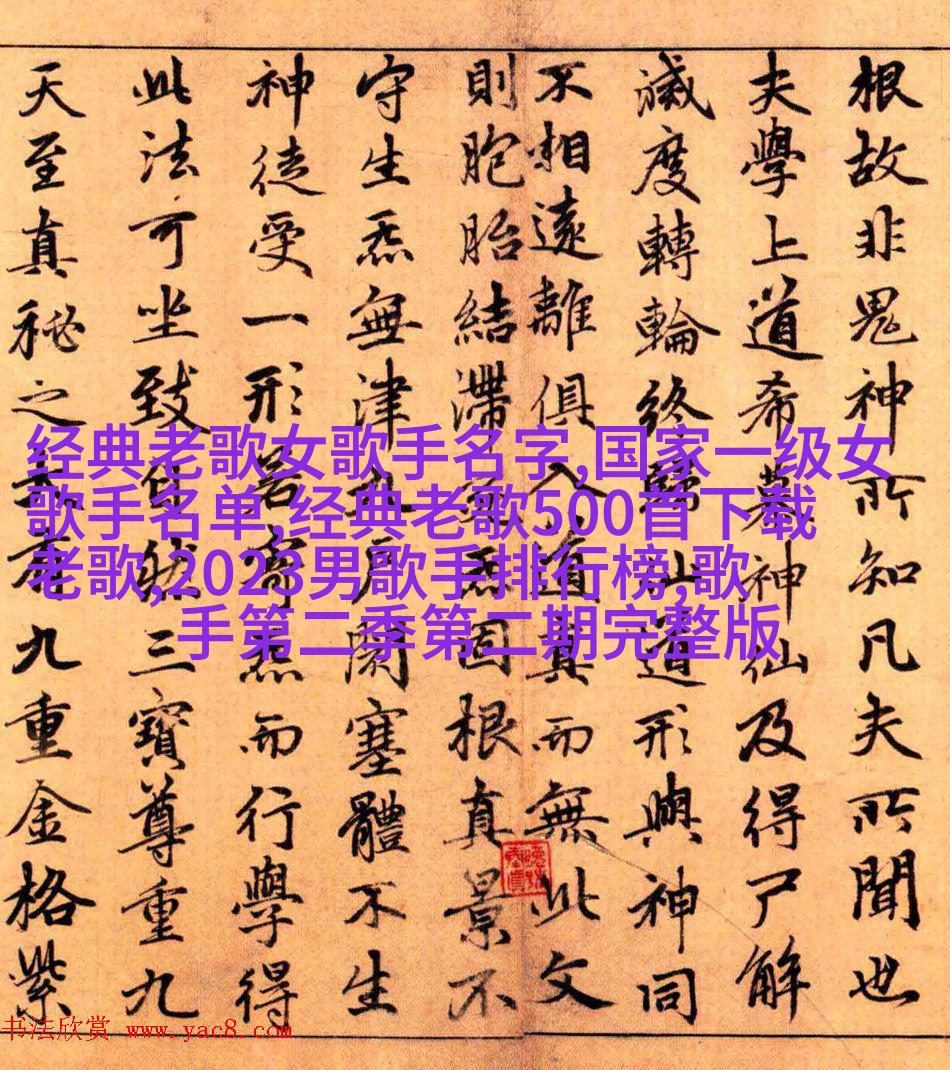 根故非鬼神所知凡夫所聞也
夫學上道希慕神仙及得尸解
滅度轉輪終歸仙道形與神同
不相遠離俱入道真而無此文
則胞胎結滯炁固根真景不
守生炁無津九戶閉塞體不生
神徒受一形若寄炁而行學得
此法可坐致自然三寶尊重九
天至真秘之玉府九重金格紫
经典老歌女歌手名字,国家一级女
歌手名单,经典老歌500首下载
老歌,2023男歌手排行榜,歌
手第二季第二期完整版
书法欣赏 www.yac8.com